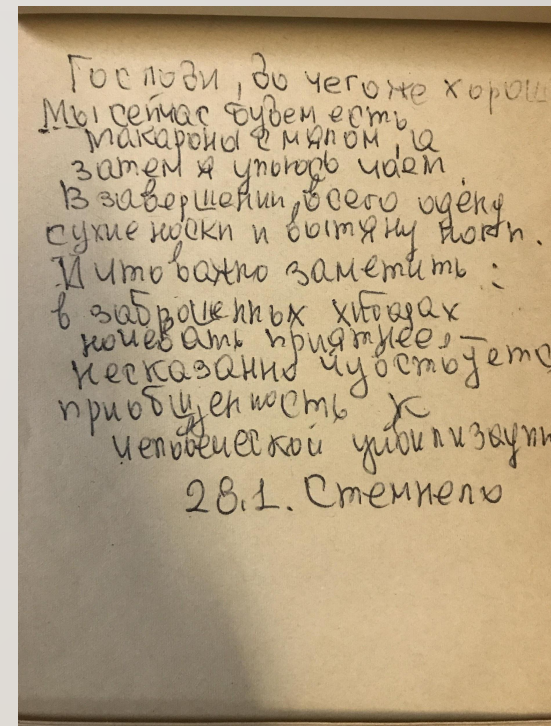 Господи, до чего же хорош
Мы сейчас будем есть
макароны с мялом, а
затем я упьюсь чаем.
В завершении, всего одену
сухие носки и вытяну ноги.
И что важно заметить :
в заброшенных
ночевать приятнее, –
несказанно чувствуетс
приобщенность к
человеческой цивилизации
28.1. Стемнело